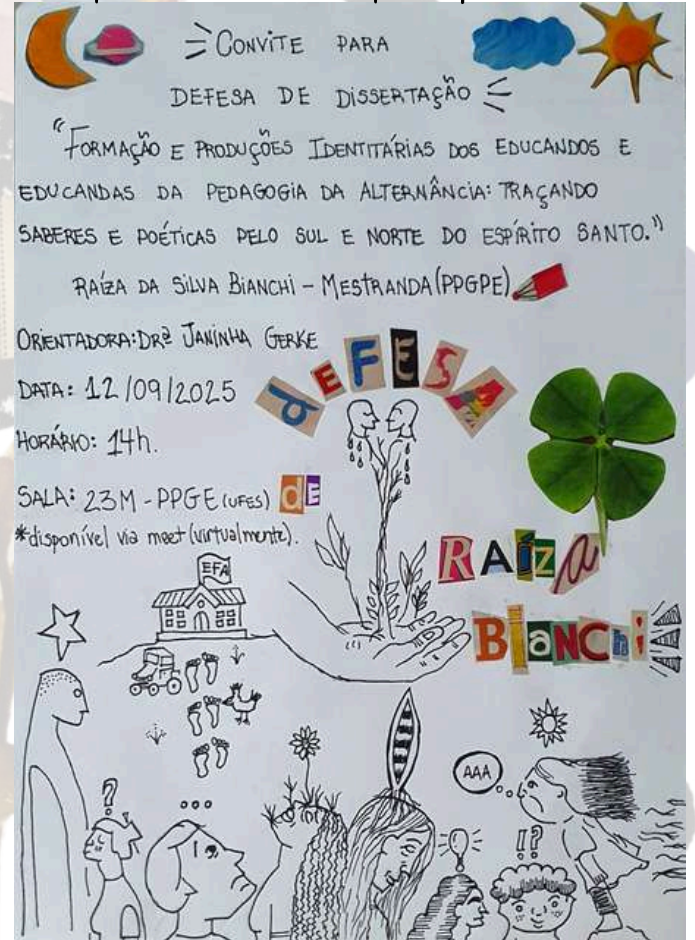 CONVITE PARA
DEFESA DE DISSERTAÇÃO
"FORMAÇÃO E PRODUÇÕES IDENTITÁRIAS DOS EDUCANDOS E
EDUCANDAS DA PEDAGOGIA DA ALTERNÂNCIA: TRAÇANDO
SABERES E POÉTICAS PELO SUL E NORTE DO ESPÍRITO SANTO."
RAÍZA DA SILVA BIANCHI - MESTRANDA (PPGPE)
ORIENTADORA: DRª JANINHA GERKE
DATA: 12/09/2025
HORÁRIO: 14h.
SALA: 23M - PPGE (UFES)
*disponível via meet (virtualmente).
DEFESA
DE
RAÍZA
BIANCHI
EFA
?
...
AAA
!?